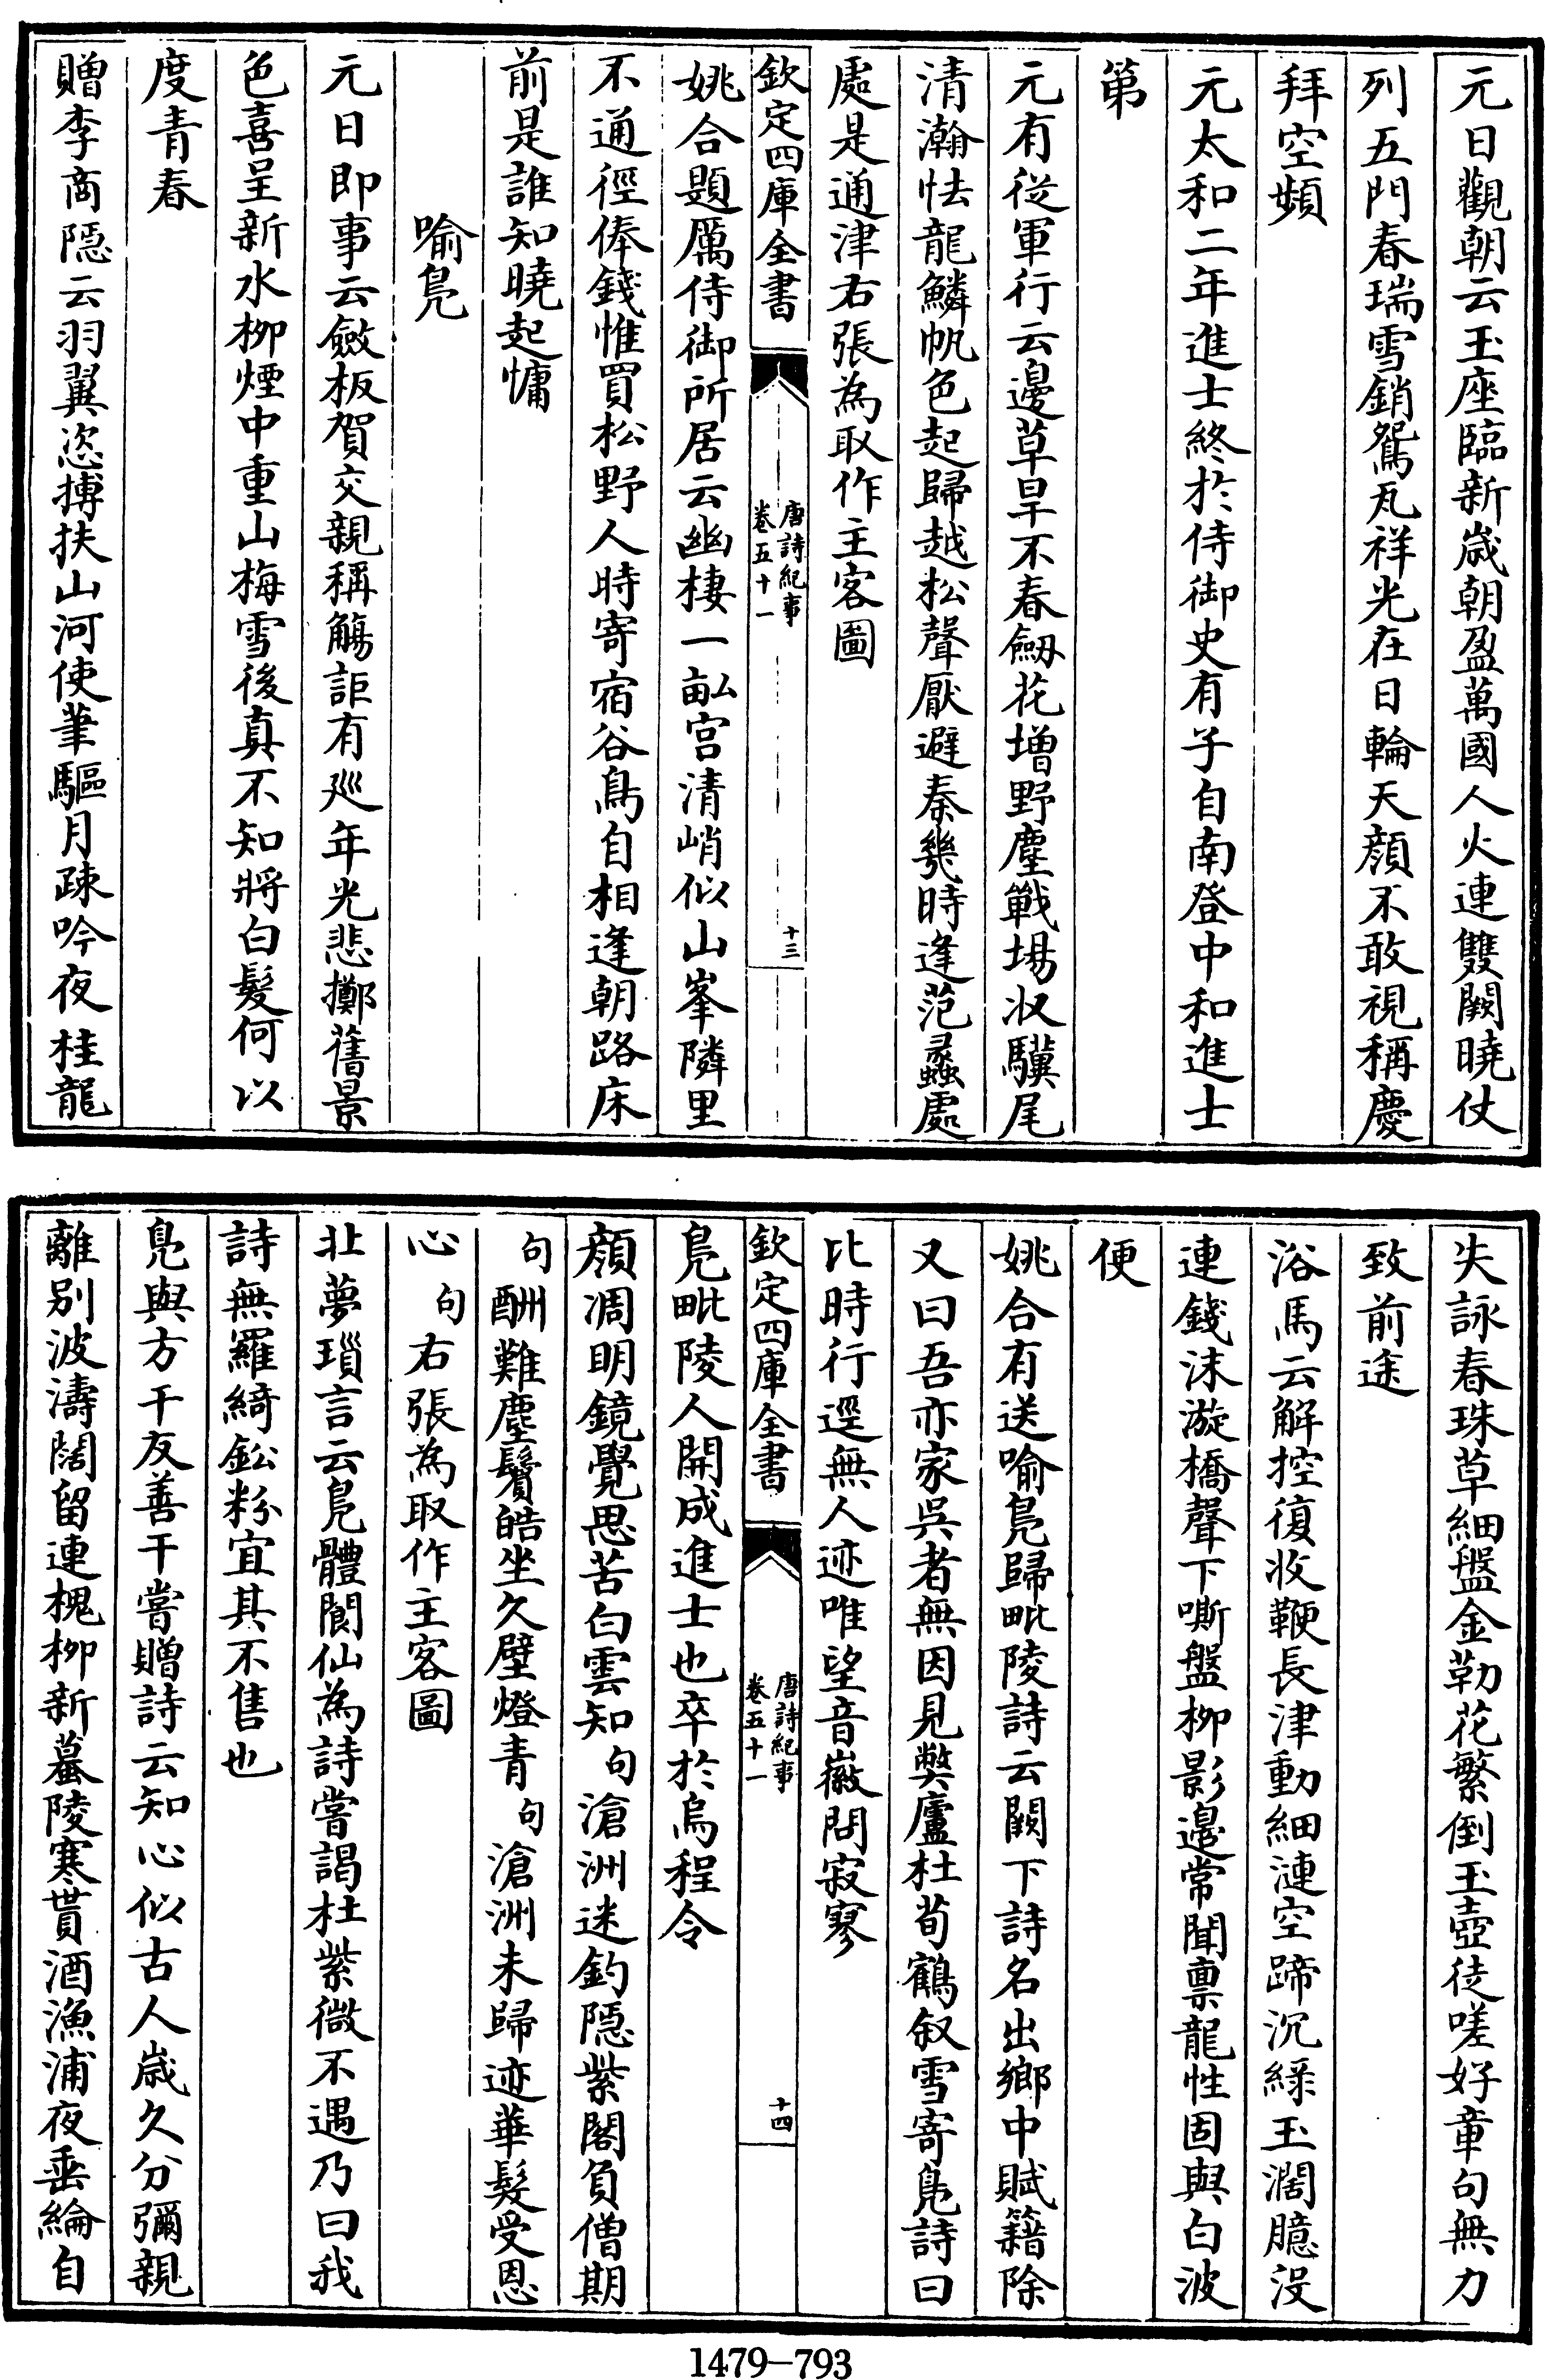 元日觀朝云玉座臨新歲朝盈萬國人火連雙闕曉仗
列五門春瑞雪銷鴛瓦祥光在日輪天顔不敢視稱慶
拜空頻
元太和二年進士終於侍御史有子自南登中和進士
第
元有從軍行云邊草早不春劒花増野塵戰場收驥尾
清瀚怯龍鱗帆色起歸越松聲厭避秦幾時逢范蠡處
處是通津右張為取作主客圖
欽定四庫全書
唐詩紀事
卷五十一
十三
姚合題厲侍御所居云幽棲一畝宫清峭似山峯隣里
不通徑俸錢惟買松野人時寄宿谷鳥自相逢朝路床
前是誰知曉起慵
喻鳬
元日即事云斂板賀交親稱觴詎有廵年光悲擲舊景
色喜呈新水栁煙中重山梅雪後真不知將白髮何以
度青春
贈李商隠云羽翼恣搏扶山河使筆驅月疎吟夜桂龍
失詠春珠草細盤金勒花繁倒玉壺徒嗟好章句無力
致前途
浴馬云解控復收鞭長津動細漣空蹄沉緑玉濶臆没
連錢沫漩橋聲下嘶盤栁影邉常聞禀龍性固與白波
便
姚合有送喻鳬歸毗陵詩云闕下詩名出鄉中賦籍除
又曰吾亦家吳者無因見弊廬杜荀鶴叙雪寄鳬詩曰
比時行逕無人迹唯望音徽問寂寥
欽定四庫全書
唐詩紀事
卷五十一
十四
鳬毗陵人開成進士也卒於烏程令
顔凋明鏡覺思苦白雲知句滄洲迷釣隠紫閣負僧期
句酬難塵鬢皓坐久壁燈青句滄洲未歸迹華髮受恩
心句右張為取作主客圖
北夢瑣言云鳬體閬仙為詩嘗謁杜紫微不遇乃曰我
詩無羅綺鈆粉宜其不售也
鳬與方干友善干嘗贈詩云知心似古人歲久分彌親
離别波濤闊留連槐栁新蟇陵寒貰酒漁浦夜垂綸自
1479—793